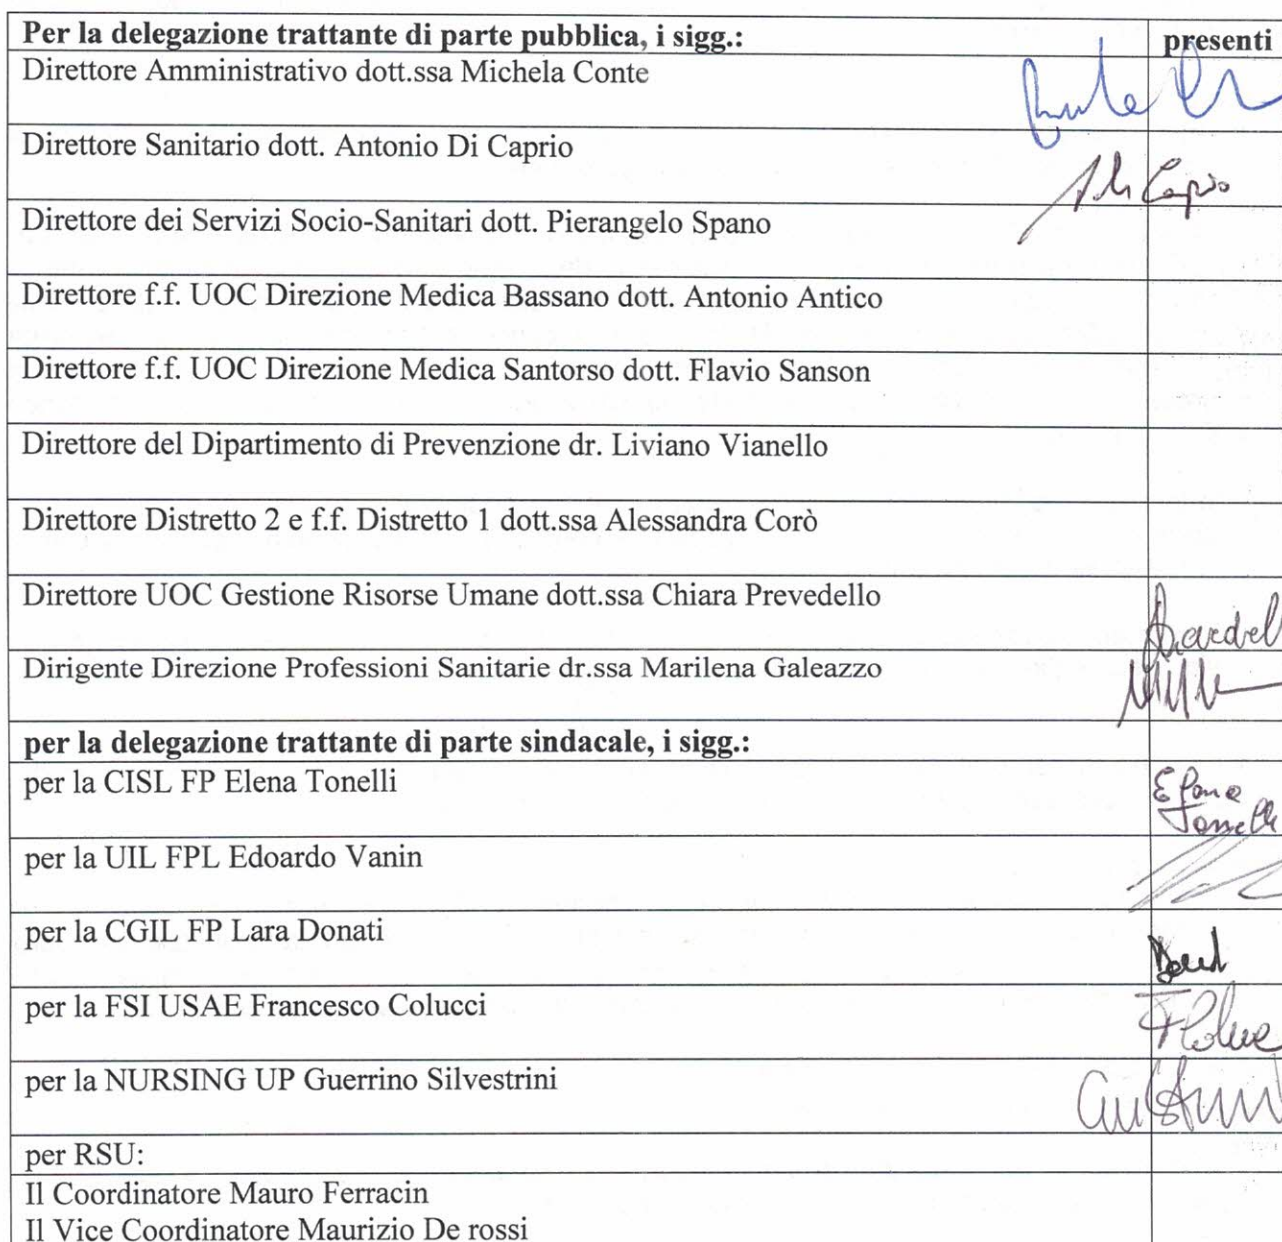 Per la delegazione trattante di parte pubblica, i sigg.: presenti
Direttore Amministrativo dott.ssa Michela Conte
Direttore Sanitario dott. Antonio Di Caprio
Di Caprio
Direttore dei Servizi Socio-Sanitari dott. Pierangelo Spano
Direttore f.f. UOC Direzione Medica Bassano dott. Antonio Antico
Direttore f.f. UOC Direzione Medica Santorso dott. Flavio Sanson
Direttore del Dipartimento di Prevenzione dr. Liviano Vianello
Direttore Distretto 2 e f.f. Distretto 1 dott.ssa Alessandra Corò
Direttore UOC Gestione Risorse Umane dott.ssa Chiara Prevedello
Dirigente Direzione Professioni Sanitarie dr.ssa Marilena Galeazzo
per la delegazione trattante di parte sindacale, i sigg.:
per la CISL FP Elena Tonelli
Elena
Tonelli
per la UIL FPL Edoardo Vanin
per la CGIL FP Lara Donati
per la FSI USAE Francesco Colucci
per la NURSING UP Guerrino Silvestrini
per RSU:
Il Coordinatore Mauro Ferracin
Il Vice Coordinatore Maurizio De rossi